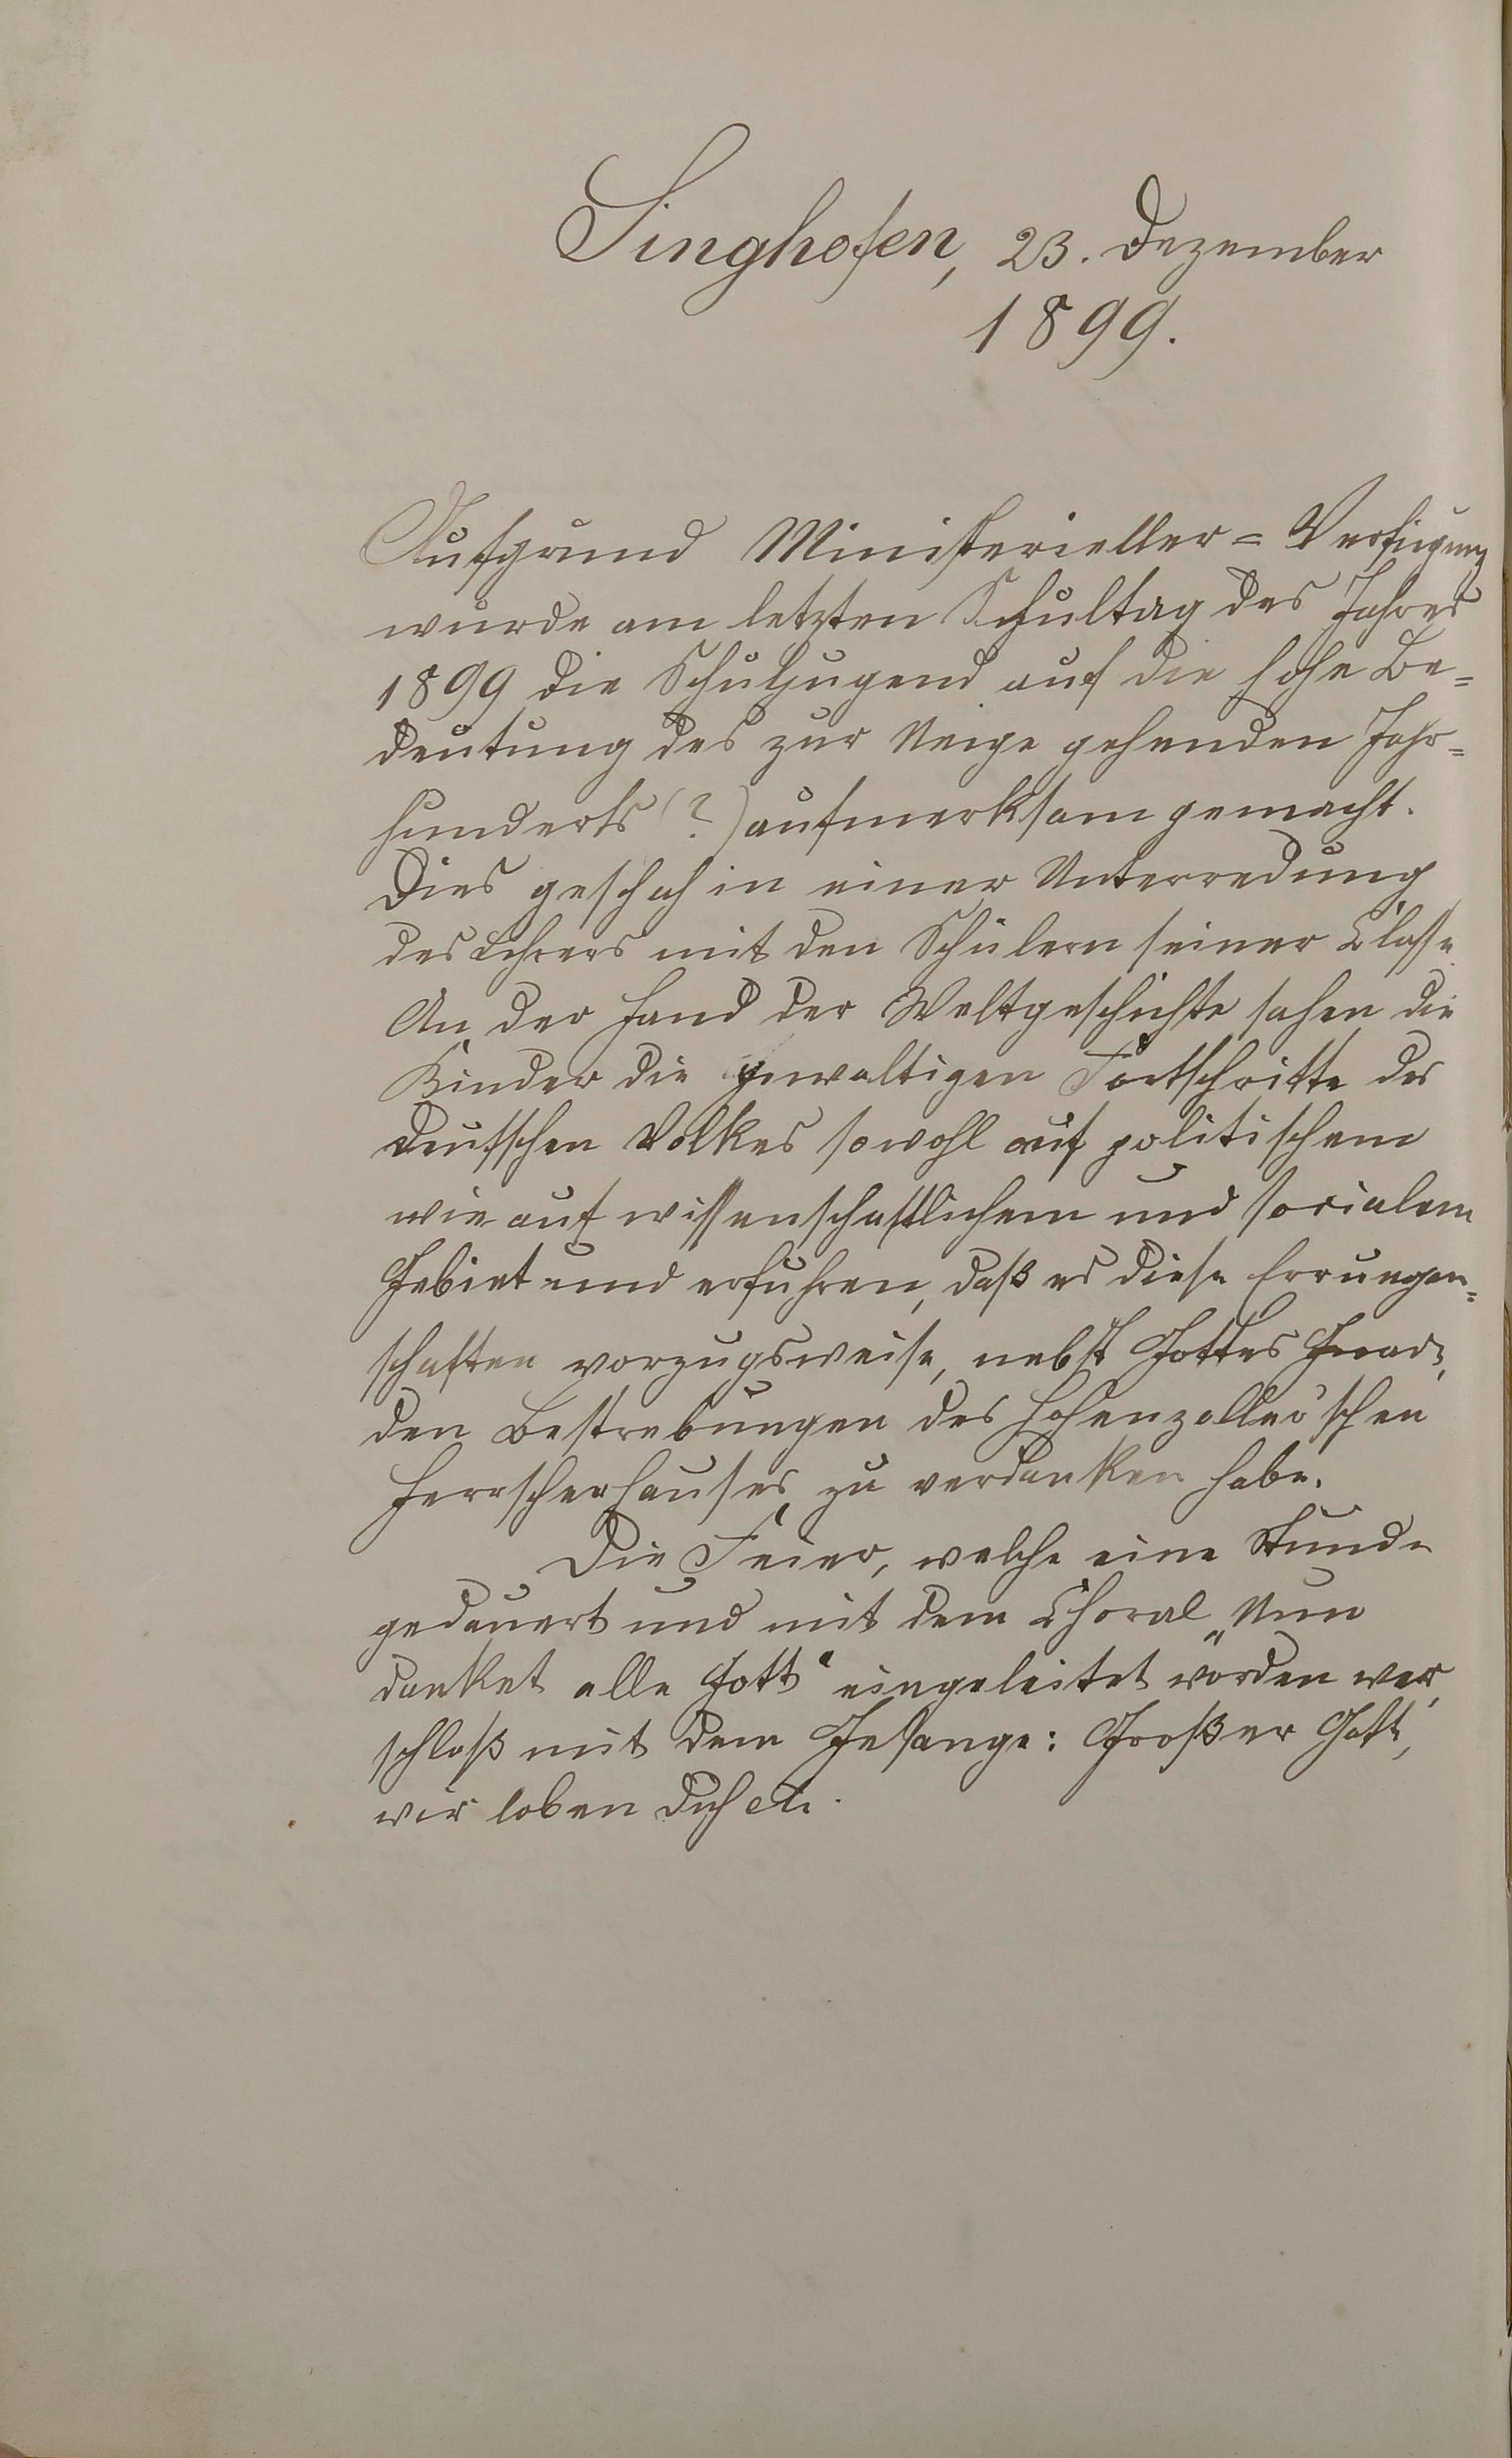 Singhofen, 23. Dezember
1899.
Aufgrund Ministerieller=Verfügung
wurde am letzten Schultag des Jahres
1899 die Schuljugend auf die hohe Be=
deutung des zur Neige gehenden Jahr=
hunderts (?) aufmerksam gemacht.
Dies geschah in einer Unterredung
des Lehrers mit den Schülern seiner Classe.
An der Hand der Weltgeschichte sahen die
Kinder die gewaltigen Fortschritte des
deutschen Volkes sowohl auf politischem
wie auf wissenschaftlichem und socialem
Gebiet und erfuhren, daß es diese Errungen=
schaften vorzugsweise, nebst Gottes Gnade,
den Bestrebungen des Hohenzoller'schen
Herrscherhauses zu verdanken habe.
Die Feier, welche eine Stunde
gedauert und mit dem Choral „Nun
danket alle Gott“ eingeleitet worden war,
schloß mit dem Gesange: Großer Gott,
wir loben dich etc.